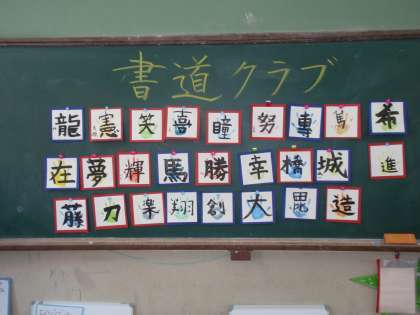 書道クラブ
龍 憲 笑 喜 瞳 努 専 篤 希
在 夢 輝 馬 勝 幸 橋 城 進
藤 刀 楽 翔 創 大 毘 造